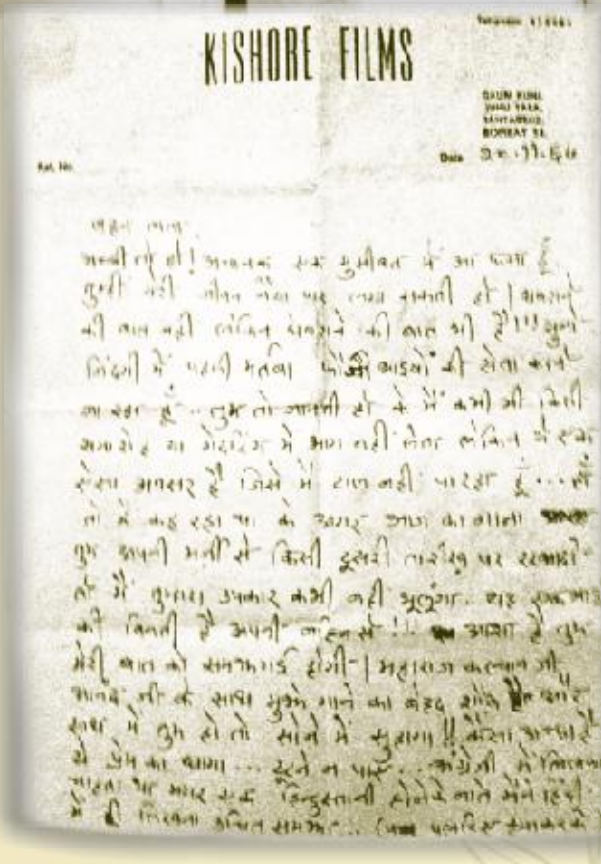 KISHORE FILMS
GAURI KUNJ,
JUHU TARA,
SANTACRUZ,
BOMBAY 54.
Ref. No.
Date
बहन लता,
अच्छी तो हो! अचानक एक मुसीबत में आ फंसा हूँ
तुम्हीं मेरी जीवन नैया पार लगा सकती हो | घबराने
की बात नहीं लेकिन घबराने की बात भी है!!! मुझे
जिंदगी में पहली मर्तबा फौजी भाइयों की सेवा करने
जा रहा हूँ .. तुम तो जानती हो के मैं कभी भी किसी
समारोह या गेदरिंग में भाग नहीं लेता लेकिन ये एक
ऐसा अवसर है जिसे मैं टाल नहीं पा रहा हूँ ... हाँ
तो मैं कह रहा था के अगर आज का गाना
तुम अपनी मर्जी से किसी दूसरी तारीख पर रखवादो
तो मैं तुम्हारा उपकार कभी नहीं भूलूंगा. यह एक भाई
की बिनती है अपनी बहिन से!! आशा है तुम
मेरी बात को समझ गई होगी | महाराज कल्याण जी
आनंद जी के साथ मुझे गाने का बेहद शौक है और
साथ में तुम हो तो सोने में सुहागा!! कैसा अच्छा है
ये प्रेम का धागा ... टूटने न पाए .. अंग्रेजी में लिखना
चाहता था मगर एक हिन्दुस्तानी होने के नाते मैंने हिंदी
में ही लिखना उचित समझा ..